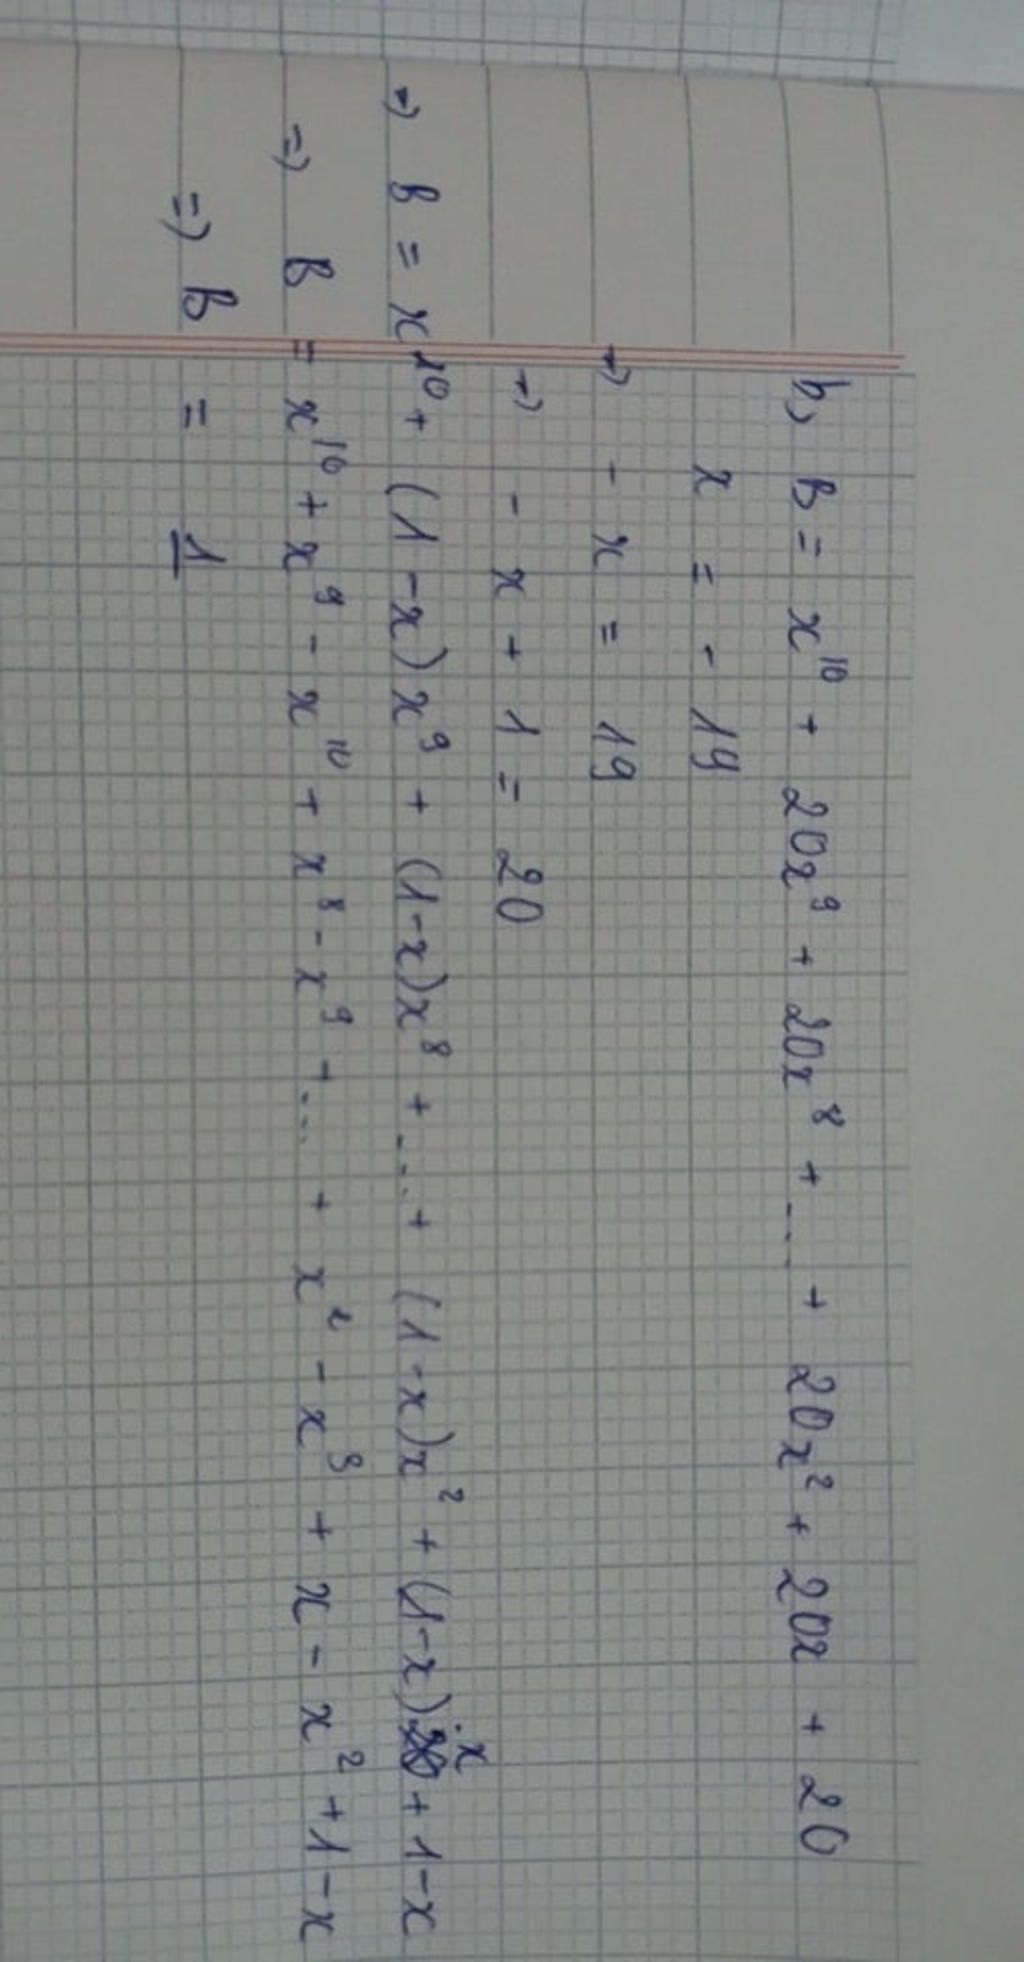 b, B = x¹⁰ + 20x⁹ + 20x⁸ + ... + 20x² + 20x + 20
x = - 19
=> - x = 19
=> - x + 1 = 20
=> B = x¹⁰ + (1 - x) x⁹ + (1-x)x⁸ + ... + (1-x)x² + (1-x).x + 1-x
=> B = x¹⁰ + x⁹ - x¹⁰ + x⁸ - x⁹ + ... + x² - x³ + x - x² + 1 - x
=> B = 1